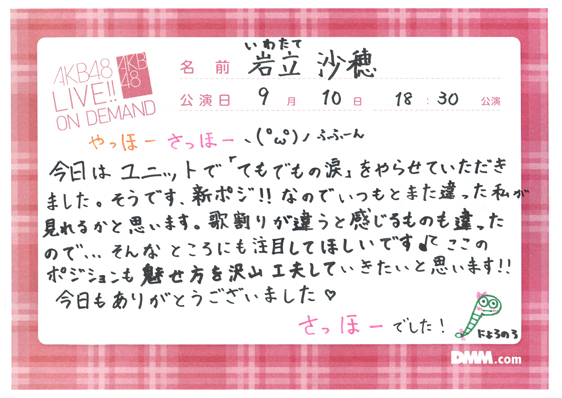 AKB48
LIVE!!
ON DEMAND
AKB
48
いわたて
名前 岩立 沙穂
公演日 9月 10日 18:30 公演
やっほー さっほー ヽ(°ω°)ノ ふふーん
今日は ユニットで「てもでもの涙」をやらせていただき
ました。そうです、新ポジ!! なのでいつもとまた違った私が
見れるかと思います。歌割りが違うと感じるものも違った
ので... そんな ところにも注目してほしいです♪ ここの
ポジションも 魅せ方を沢山 工夫していきたいと思います!!
今日もありがとうございました♡
さっほーでした!
にょろのろ
DMM.com